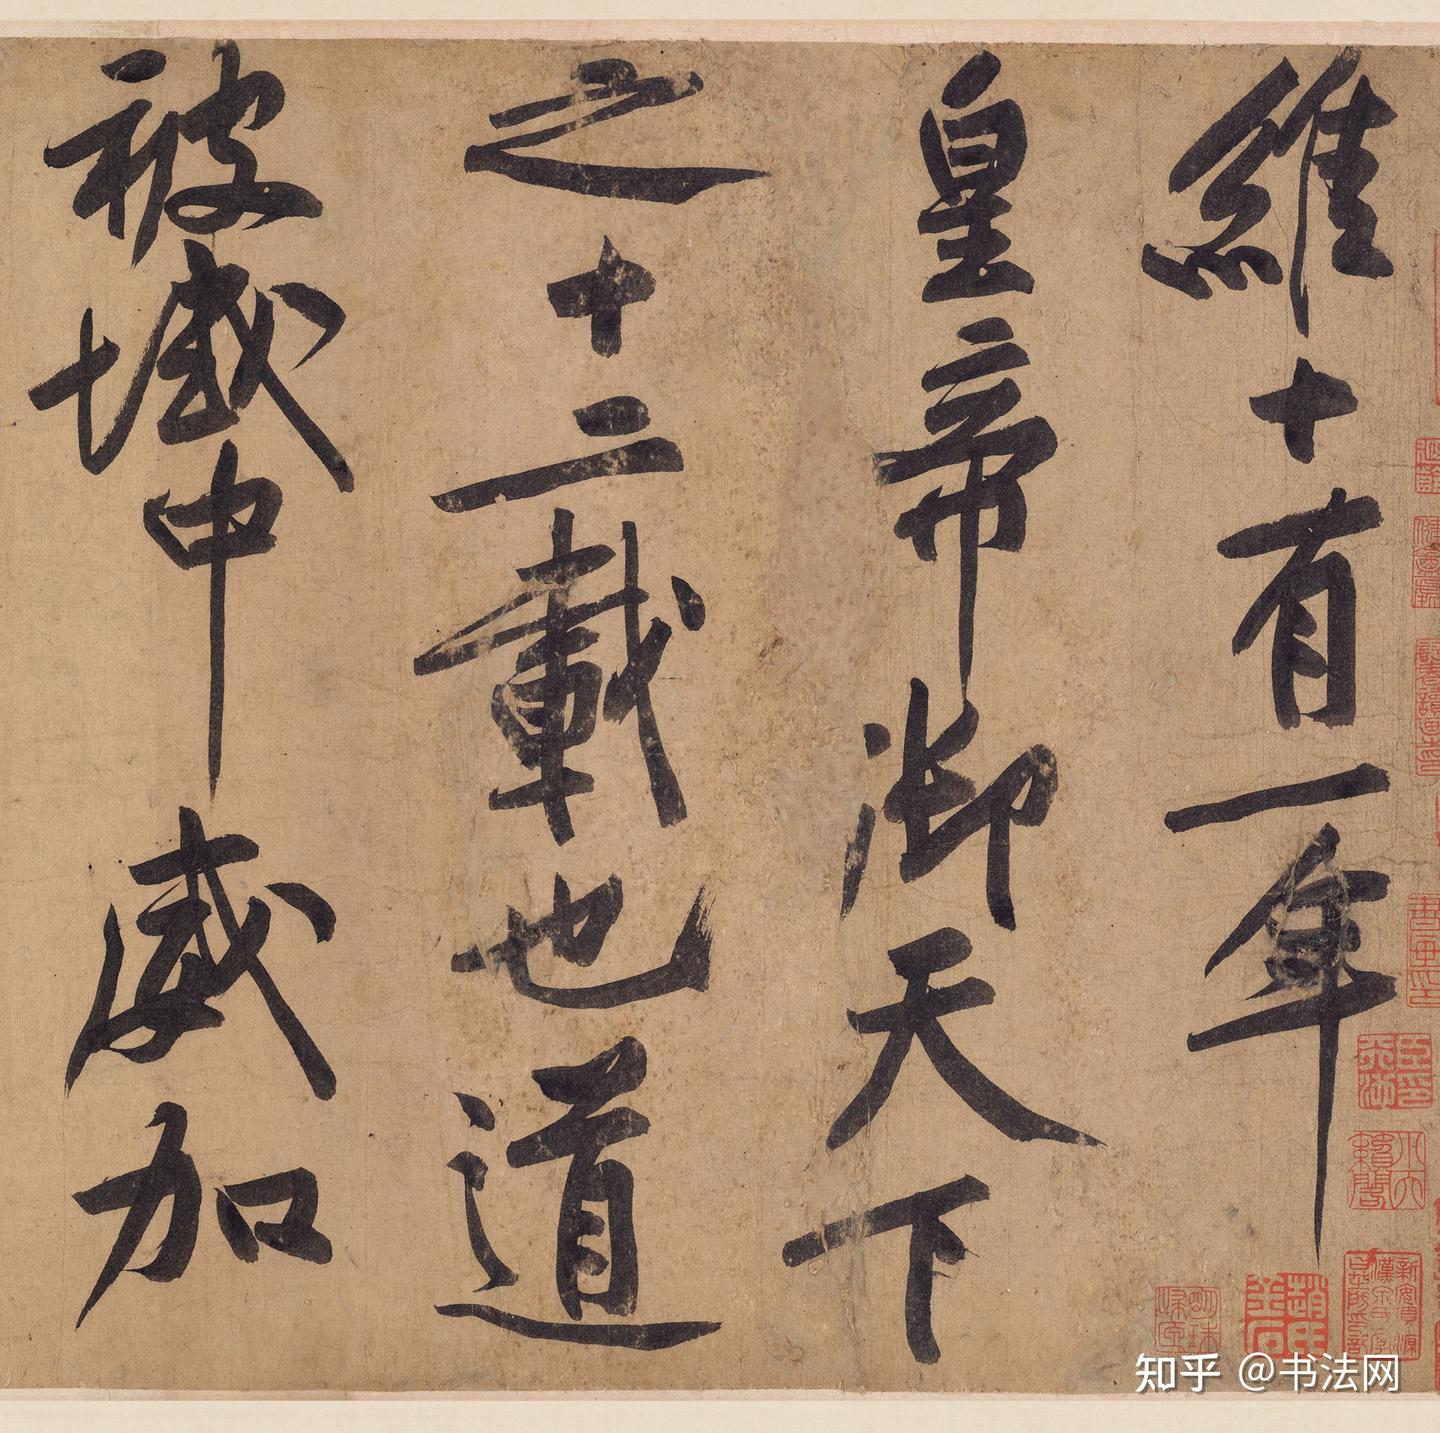 維十有一年
皇帝御天下
之十二載也道
被域中威加
知乎 @书法网